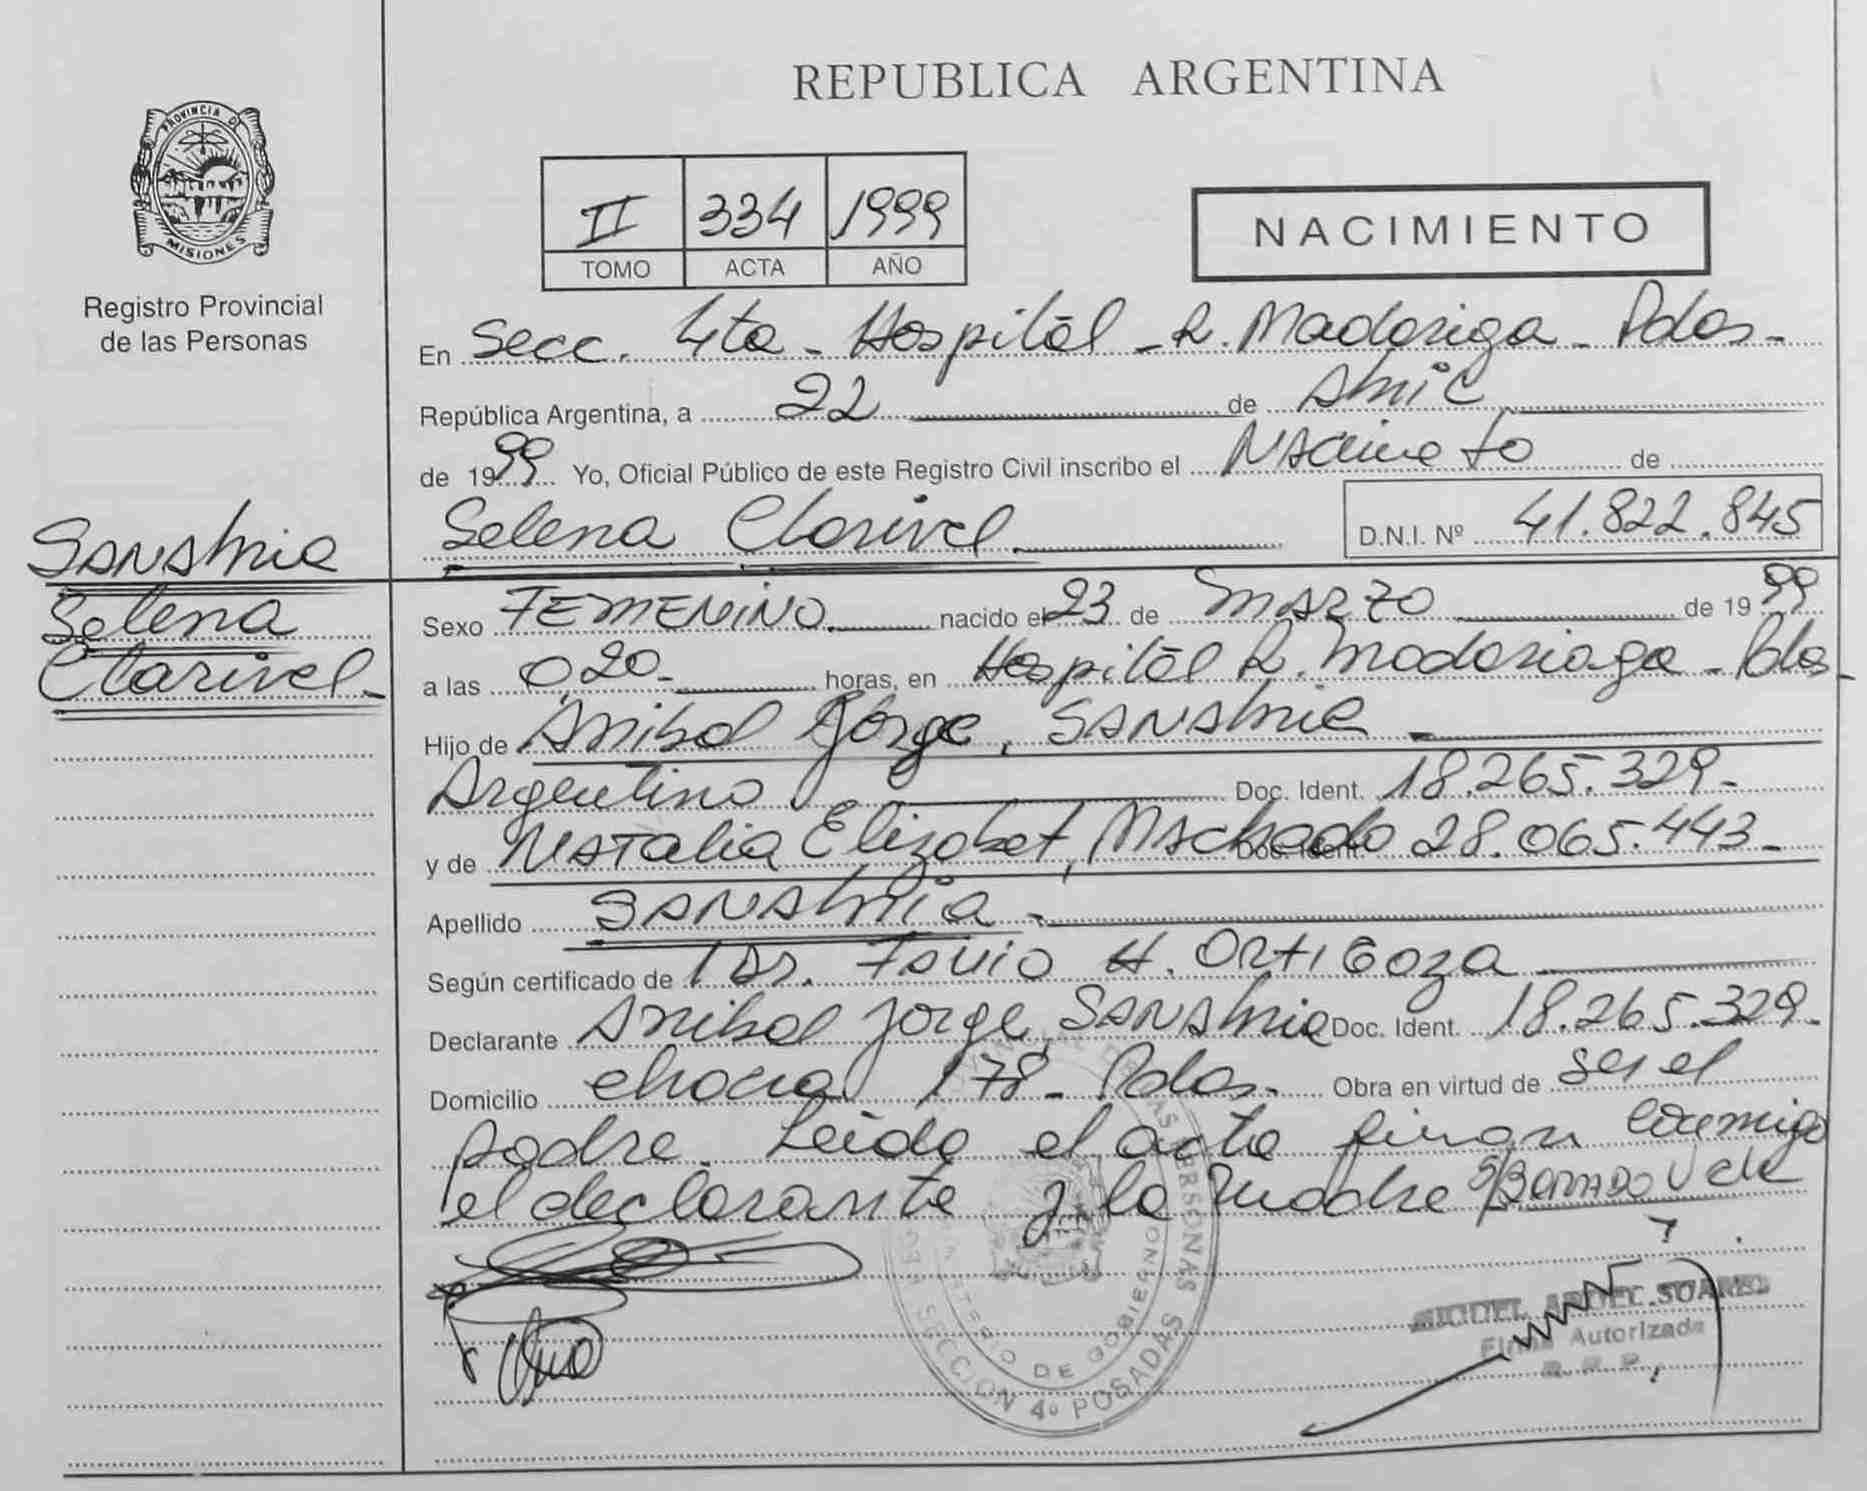 REPUBLICA ARGENTINA
PROVINCIA DE
MISIONES
Registro Provincial
de las Personas
II 334 1999
TOMO ACTA AÑO
NACIMIENTO
En Secc. 4ta - Hospital - R. Madariaga - Pdas -
República Argentina, a 22 de Abril
de 1999 Yo, Oficial Público de este Registro Civil inscribo el Nacimieto de
Selena Clarivel D.N.I. Nº 41.822.845
SANAbria
Selena
Clarivel -
Sexo FEMENINO nacido el 23 de MARZO de 1999
a las 0,20 - horas, en Hospital R. Madariaga - Pdas -
Hijo de Anibal Jorge, SANAbria
Argentino Doc. Ident. 18.265.329 -
y de NATalia Elizabet, MAchado Doc. Ident. 28.065.443 -
Apellido SANAbria -
Según certificado de Dr. H. ORtiGoza
Declarante Anibal Jorge, SANAbria Doc. Ident. 18.265.329 -
Domicilio 178 - Pdas - Obra en virtud de ser el
padre. Leida el acta firman conmigo
el declarante y la madre S/BORRADO Vale
SECCION 4º POSADAS
MINISTERIO DE GOBIERNO
ABDEL SUAREZ
Firma Autorizada
R. P. P.